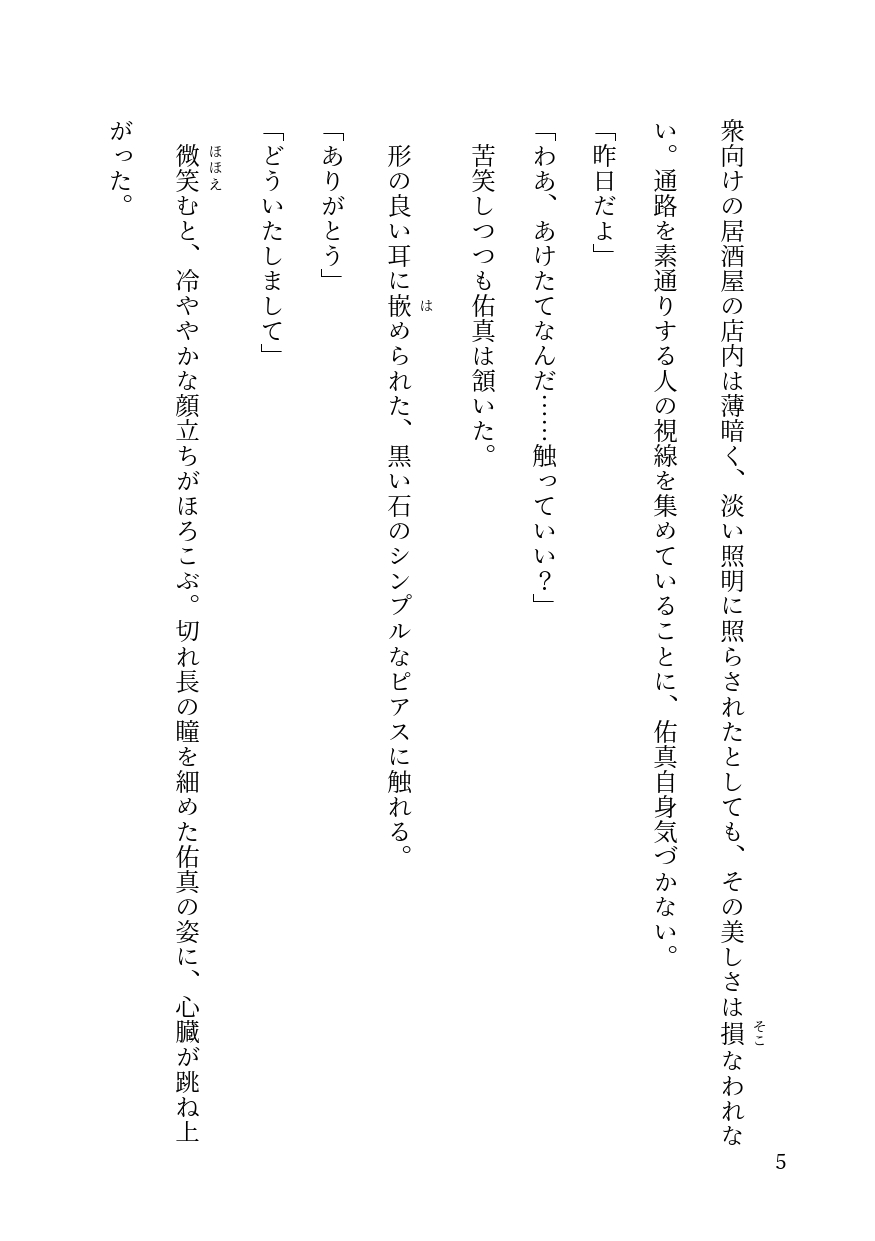 衆向けの居酒屋の店内は薄暗く、淡い照明に照らされたとしても、その美しさは損なわれな
そこ
い。通路を素通りする人の視線を集めていることに、佑真自身気づかない。
「昨日だよ」
「わあ、あけたてなんだ……触っていい？」
苦笑しつつも佑真は頷いた。
形の良い耳に嵌められた、黒い石のシンプルなピアスに触れる。
は
「ありがとう」
「どういたしまして」
微笑むと、冷ややかな顔立ちがほろこぶ。切れ長の瞳を細めた佑真の姿に、心臓が跳ね上
ほほえ
がった。
5